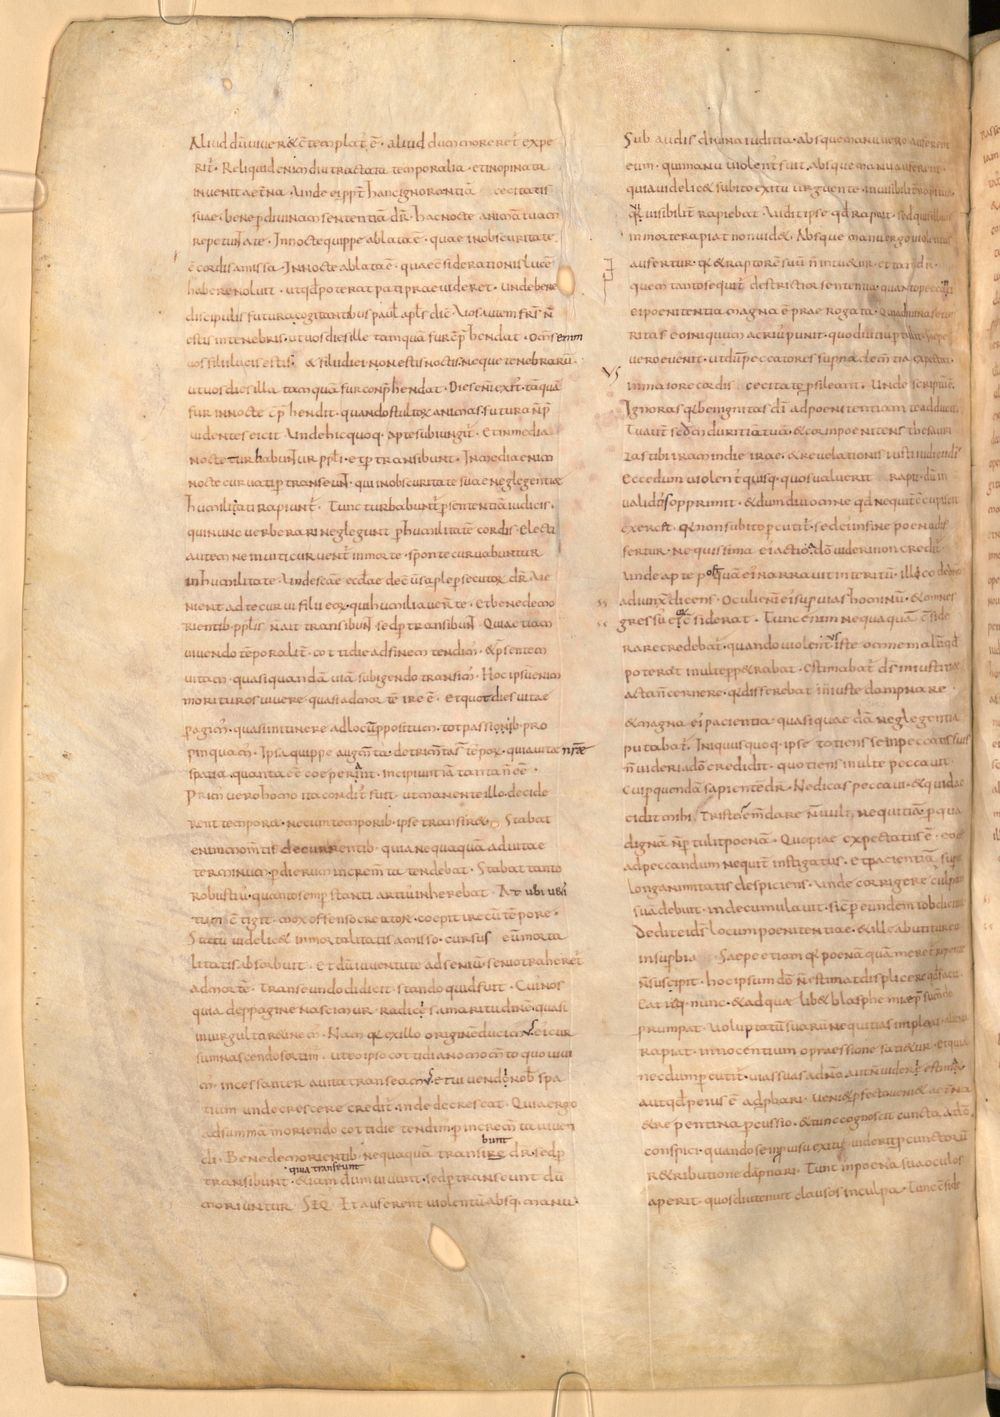 Aliud dū viver& cētemplat̄ ē · aliud dum morer&̄ expe
rit̄ · Reliquid enim diu tractata temporalia · et inopinata
invenit aet̄na · Unde ei ppt̄ hanc ignorantiā cecitatis
suae · bene p̄ divinam sententiā dr̄ · Hac nocte animā tuam
repetunt a te · In nocte quippe ablata ē · quae in obscuritate
ē cordis amissa · In nocte ablata ē · quae c̄siderationis lucē
habere noluit · ut qd̄ poterat pati praevideret · Unde bene
discipulis futura cogitantibus paul apls dic̄ · Vos autem frs̄ n̄
estis in tenebris · ut vos dies ille tamquā fur c̄p̄hendat · Om̄s enim
vos filii lucis estis · & filii diei non estis noctis · neque tenebrarū ·
ut vos dies illa tamquam fur conp̄hendat · Dies enī exit̄ · tāquā
fur in nocte c̄p̄hendit · quando stultoꝝ animas futura n̄ p̄
videntes eicit · Unde hic quoq · apte subiungit̄ · Et in media
nocte turbabuntur ppl̄i · et p̄transibunt · In media enim
nocte curvati p̄transeunt · qui in obscuritate suae neglegentiae
humiliati rapiunt̄ · Tunc turbabunt̄ p̄ sententiā iudicis ·
qui nunc verberari neglegunt p̄ humilitatē cordis · Electi
autem ne inviti curvent̄ in morte · sponte curvabuntur
in humilitate ·
nient ad te curvi filii eoꝝ · qui humiliaver̄ te · Et bene de mo
rientib · ppl̄is n̄ ait transibunt sed p̄transibunt · Quia etiam
vivendo tēporalit̄ · cottidie ad finem tendim̄ · & p̄sentem
vitam · quasi quandā viā subigendo transim̄ · Hoc ipsū enim
morituros vivere · quasi ad mortē ire ē · Et quot dies vitae
pagim̄ · quasi in itinere ad locū p̄positum · tot passionib · pro
pinquam̄ · Ipsa quippe augm̄ta · detrim̄ta s̄ tēpoꝝ · quia vitae nr̄ae
spatia · quanta c̄e coeperant · incipiunt iā tanta n̄ ee ·
Prim̄ vero homo ita condit̄ fuit · ut manente illo decide
rent tempora · nec cum temporib · ipse transir& · Stabat
enim mom̄tis decurrentib · quia nequaquā ad vitae
terminum · p̄ dierum increm̄ta tendebat · Stabat tanto
robustiu · quanto semp̄ stanti artiu inherebat · At ubi veti
tum c̄tigit · mox offenso creatore · coepit ire cū tēpore ·
Statu videlic& inmortalitatis amisso · cursus eū morta
litatis absorbuit · Et dū iuventute ad seniū · senio traheret̄
ad mortē · Transeundo didicit · stando quid fuit · Cui nos
quia de ppagine nascimur · radicis amaritudinē · quasi
in virgulto r&inem · Nam q̄ ex illo originē ducim̄ · ei cur
sum nascendo sortim · ut eo ipso cottidiano mom̄to quo vivi
m̄ · incessanter a vita transeam̄ · et vivendi nob̄ spa
tium unde crescere credit̄ · inde decrescat · Quia ergo
ad summā moriendo cottidie tendim̄ · p̄ increm̄ta viven
di · Bene de morientib · nequaquā transire dr̄ · sed p̄
bunt
transibunt · quia transeunt &iam dum vivunt · sed p̄transeunt dū
moriuntur · SEQ · Et auferent violentū absq · manu ·
Sub audis divina iuditia · absque manu vero auferent
eum · qui manu violent̄ fuit · Absque manu auferent̄
quia videlic& subito exitu urguente · invisibilit̄ rapitur
qui visibilit̄ rapiebat · Audit ipse qd̄ rapuit · sed quis illum
in morte rapiat non vid& · Absque manu ergo violentus
aufertur · q̄ & raptorē suū n̄ intu&ur · et tam̄ dr̄
quem tanto sequit̄ destrictior sententia · quanto peccanti
ei poenitentia magna ē prae rogata · Quia divina seve
ritas eo iniquum acriu punit · quo diutiu ptulit · Saepe
vero evenit · ut dū peccatores supna clem̄tia expectat ·
in maiore cordis cecitate psileant · Unde scriptū ē ·
Ignoras q̄ benignitas dī ad poenitentiam te adducit
Tu aut̄ secdm duritiā tuā · & cor inpoenitens thesauri
zas tibi iram in die irae · & revelationis iusti iudicii dī
Ecce dum violent̄ quisq · quos valuerit rapit · dū in
validos opprimit · & dum divo anne qd̄ nequit̄ c̄cupiscit
exerc& · q̄ non subito pcutit̄ · sed ei in fine poena dif
fertur · nequissima ei actio · a dō videri non credit̄ ·
Unde apte postquā ei narravit interitū · illico de eo
adiunx dicens · Oculi enī ei sup vias hominū · & omnes
gressū eoꝝ c̄siderat · Tunc enim nequaquā c̄side
rare credebat̄ · quando violent̄ iste omne malū qd̄
poterat inulte ppetrabat · Estimabat̄ ds̄ iniustitiae
acta n̄ cernere · q̄ differebat iniuste dampnare ·
& magna ei pacientia · quasi quaedā neglegentia
putabat̄ · Iniquus quoq · ipse totiens se in peccatis suis
n̄ videri a dō credidit · quotiens inulte peccavit ·
Cui p quendā sapientē dr̄ · Ne dicas peccavi · & quid ac
cidit mihi · Triste em̄dare n̄ vult · nequitiam p qua
dignā n̄ ptulit poenā · Quo piae expectatus ē · eo
ad peccandum nequit̄ instigatus · et pacientiā supne
longanimitatis despiciens · unde corrigere culpam
suā debuit · inde cumulavit · sic p eundem iob dicitur
Dedit ei ds̄ locum poenitentiae · & ille abutitur eo
in supbia · Saepe etiam q̄ poenā quam mer&̄ repente
n̄ suscipit · hoc ipsum dō n̄ estimat displicere qd̄ facit ·
Eat itaq · nunc · & ad quae lib& blasphemiae p suendo
prumpat · voluptatū suarū nequitias impleat · aliena
rapiat · innocentium oppraessione sati&ur · et quia
necdum pcutit̄ · vias suas a dn̄o aut n̄ videri estimat ·
aut qd̄ peius ē adphari · Veni& pfecto veni& aet̄na
& repentina pcussio · & tunc cognoscit cuncta a dō
conspici · quando se inpviso exitu · viderit p cunctorū
r&ributione dāpnari · Tunc in poena sua oculos
aperit · quos diu tenuit clausos in culpa · Tunc c̄side